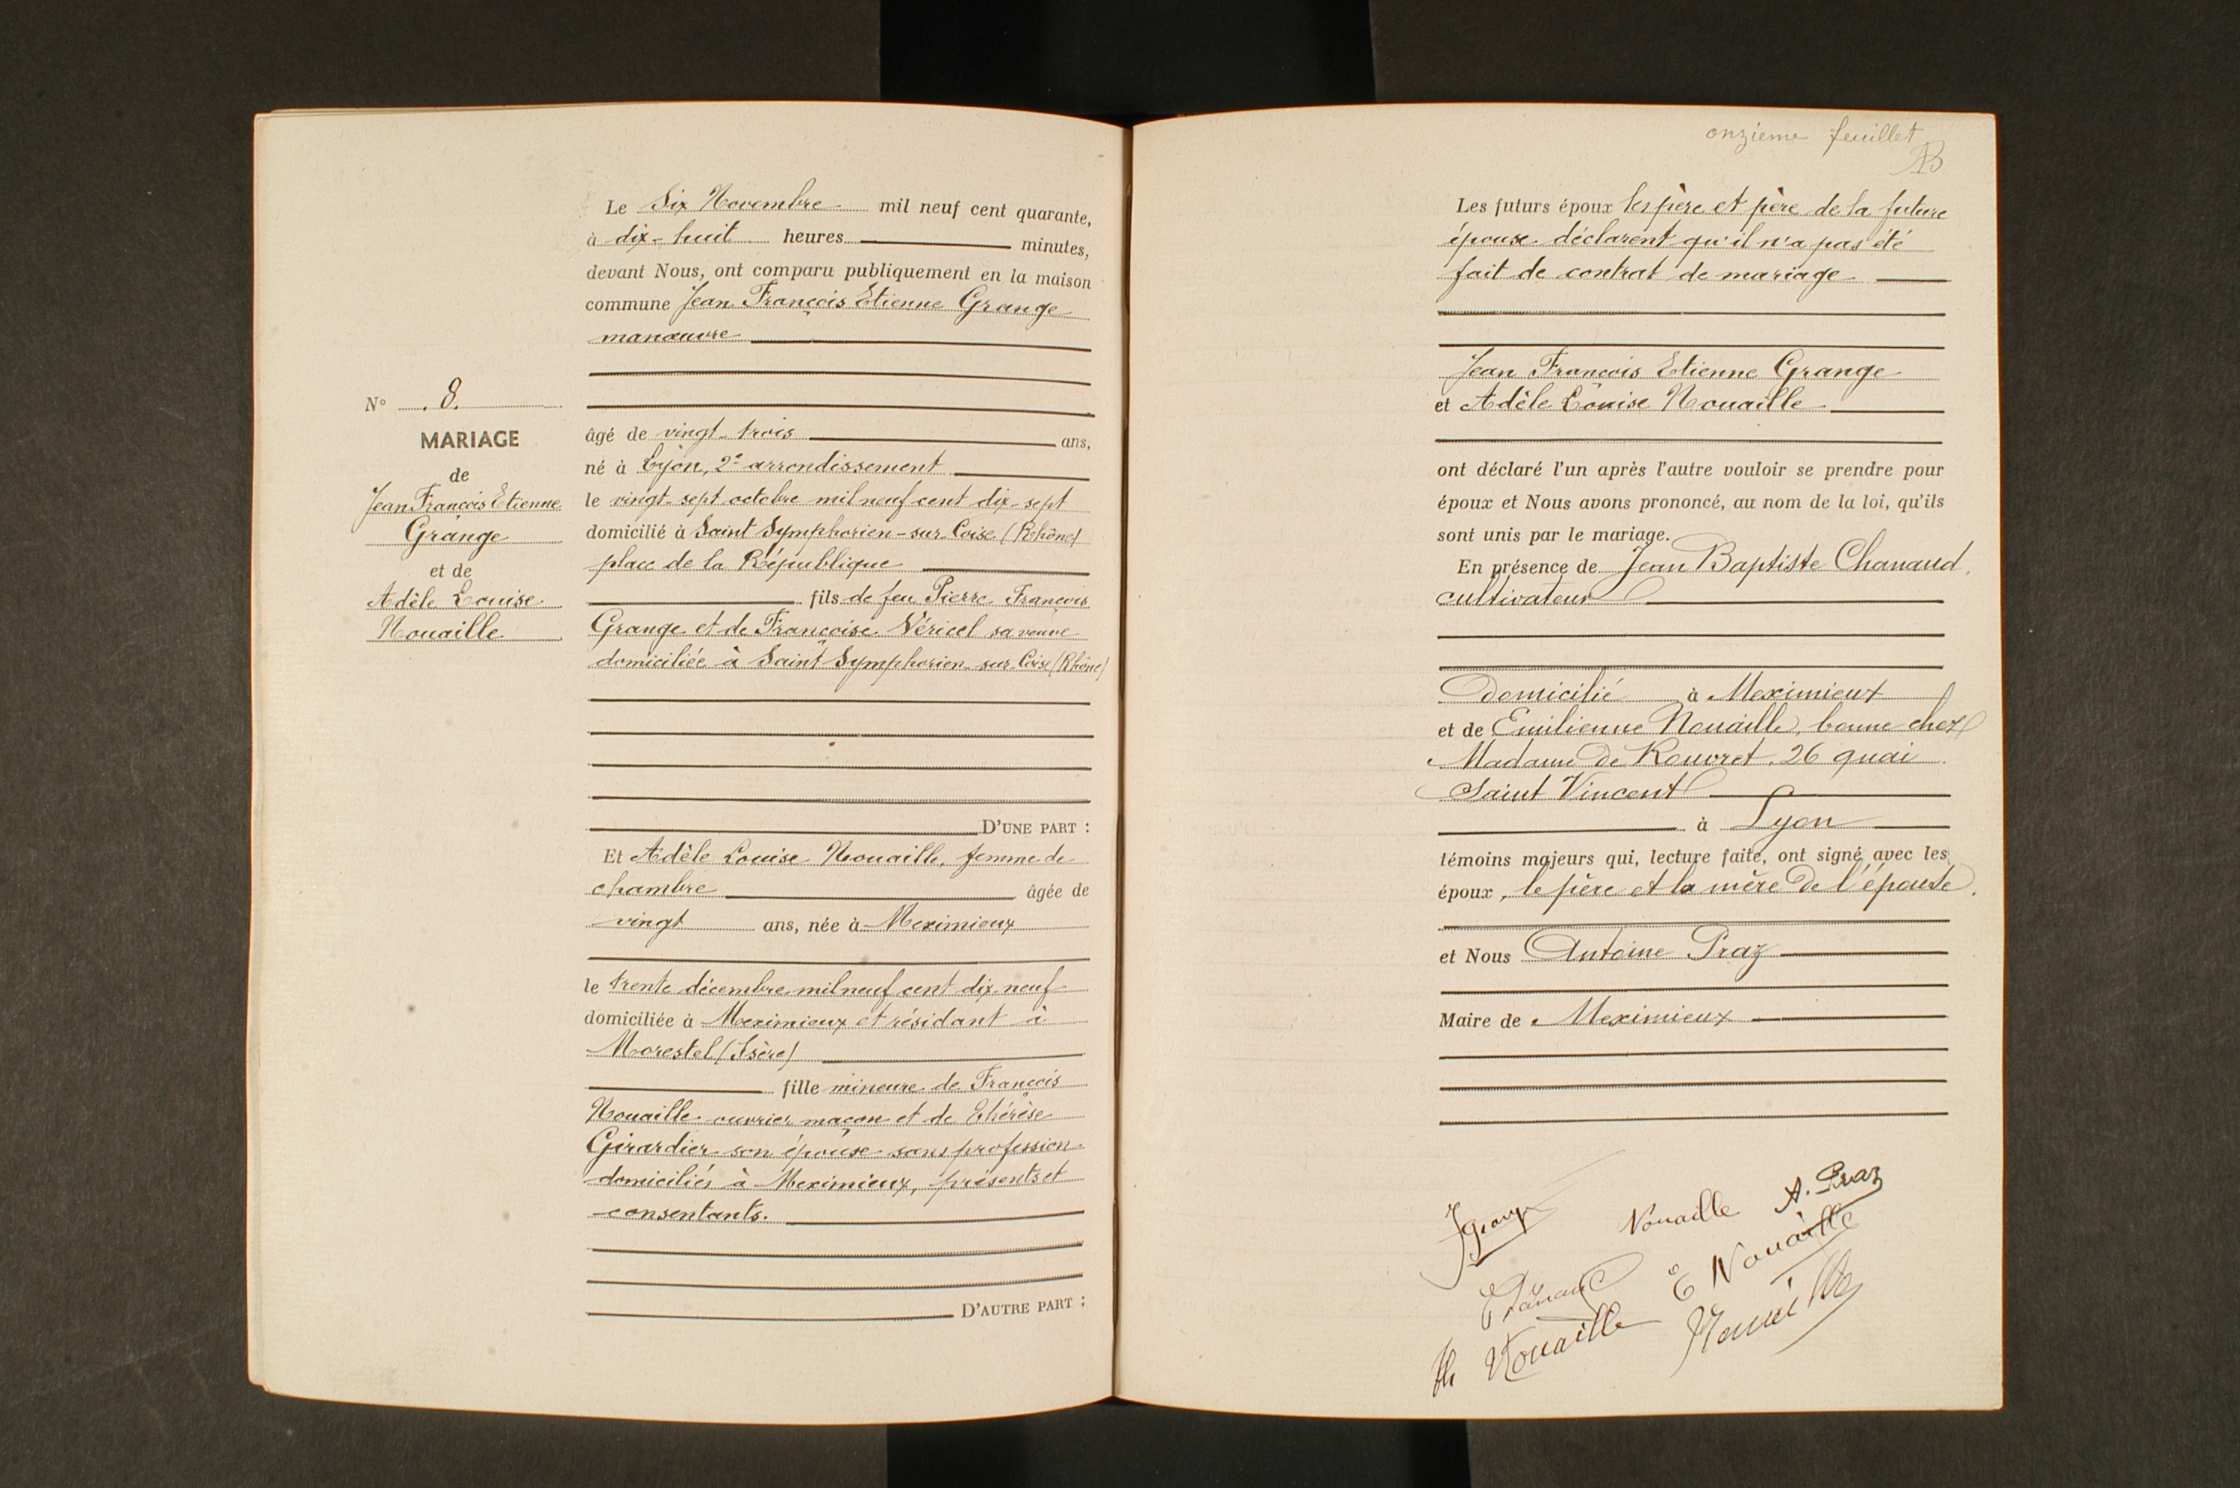 Le Six Novembre mil neuf cent quarante,
à dix-huit heures minutes,
devant Nous, ont comparu publiquement en la maison
commune Jean François Etienne Grange
manœuvre
N° 8.
MARIAGE
de
Jean François Etienne
Grange
et de
Adèle Louise
Nouaille
âgé de vingt-trois ans,
né à Lyon, 2e arrondissement
le vingt-sept octobre mil neuf cent dix-sept
domicilié à Saint Symphorien-sur-Coise (Rhône)
place de la République
fils de feu Pierre François
Grange et de Françoise Véricel sa veuve
domiciliée à Saint Symphorien-sur-Coise (Rhône)
D'UNE PART :
Et Adèle Louise Nouaille, femme de
chambre âgée de
vingt ans, née à Meximieux
le trente décembre mil neuf cent dix-neuf
domiciliée à Meximieux et résidant à
Morestel (Isère)
fille mineure de François
Nouaille ouvrier maçon et de Thérèse
Girardier son épouse sans profession
domiciliés à Meximieux, présents et
consentants.
D'AUTRE PART :
onzième feuillet
Les futurs époux les père et père de la future
épouse déclarent qu'il n'a pas été
fait de contrat de mariage
Jean François Etienne Grange
et Adèle Louise Nouaille
ont déclaré l'un après l'autre vouloir se prendre pour
époux et Nous avons prononcé, au nom de la loi, qu'ils
sont unis par le mariage.
En présence de Jean Baptiste Chanaud,
cultivateur
Domicilié à Meximieux
et de Emilienne Nouaille, bonne chez
Madame de Rouvret, 26 quai
Saint Vincent
à Lyon
témoins majeurs qui, lecture faite, ont signé avec les
époux, le père et la mère de l'épouse.
et Nous Antoine Praz
Maire de Meximieux
JGrange Nouaille A. Praz
Chanaud E Nouaille
Th Nouaille Nouaille